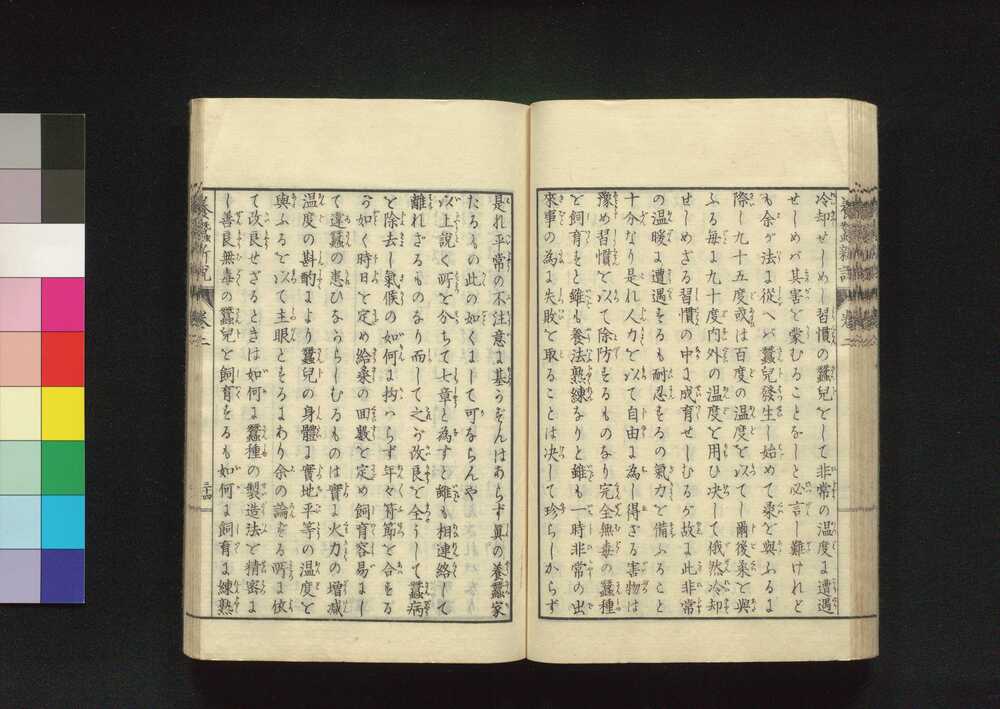 冷却せしめし習慣の蠶兒をして非常の温度に遭遇
せしめバ其害を蒙むることなしと必言し難けれど
も余が法に從へバ蠶兒發生し始めて桒を與ふるに
際し九十五度或は百度の温度を以てし爾後桒を與
ふる毎に九十度内外の温度を用ひ决して俄然冷却
せしめざる習慣の中に成育せしむるが故に此非常
の温暖に遭遇をるも耐忍をるの氣力を備ふること
十分なり是れ人力を以て自由に為し得ざる害物は
豫め習慣を以て除防をるものなり完全無毒の蠶種
を飼育をと雖も養法熟練なりと雖も一時非常の出
來事の為に失敗を取ることは决して珍らしからず
是れ平常の不注意に基うざんはあらず真の養蠶家
たるもの此の如くにして可ならんや
以上說く所を分ちて七章と為すと雖も相連絡して
離れざるものなり而して之が改良を全うして蠶病
を除去し氣候の如何に拘らず年々符節を合をる
が如く時日を定め給桑の回數を定め飼育容易にし
て違蠶の患ひなからしむるものは實に火力の増减
温度の斟酌により蠶兒の身體に實地平等の温度を
與ふるを以て主眼とをるにあり余の論をる所に依
て改良せざるときは如何に蠶種の製造法を精密に
し善良無毒の蠶兒を飼育をるも如何に飼育に練熟
養蠶新説
卷之二
三十四